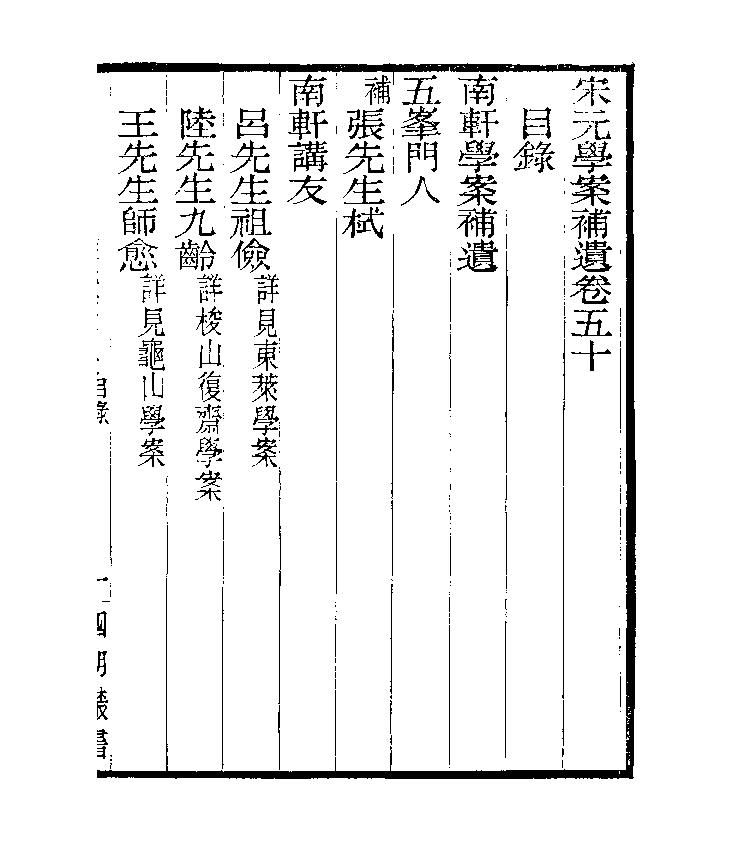 宋元學案補遺卷五十
目錄
南軒學案補遺
五峯門人
補張先生栻
南軒講友
呂先生祖儉詳見東萊學案
陸先生九齡詳梭山復齋學案
王先生師愈詳見龜山學案
目錄
一
四明叢書